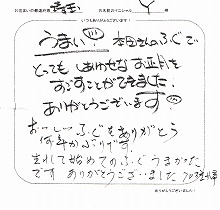 お住まいの都道府県 青森 お名前のイニシャル Y
いつもありがとうございます!
うまい!!! 本田さんのふぐで
とってもしあわせなお正月を
すごすことができました。
ありがとうございます
おいしいふぐをありがとう
何年かぶりです。
生れて始めてのふぐうまかった
です ありがとうございました
ありがとうございました!